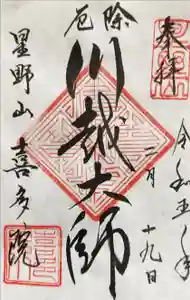 奉拝
令和五年
一月
十九日
厄除
川越大師
星野山
喜多院